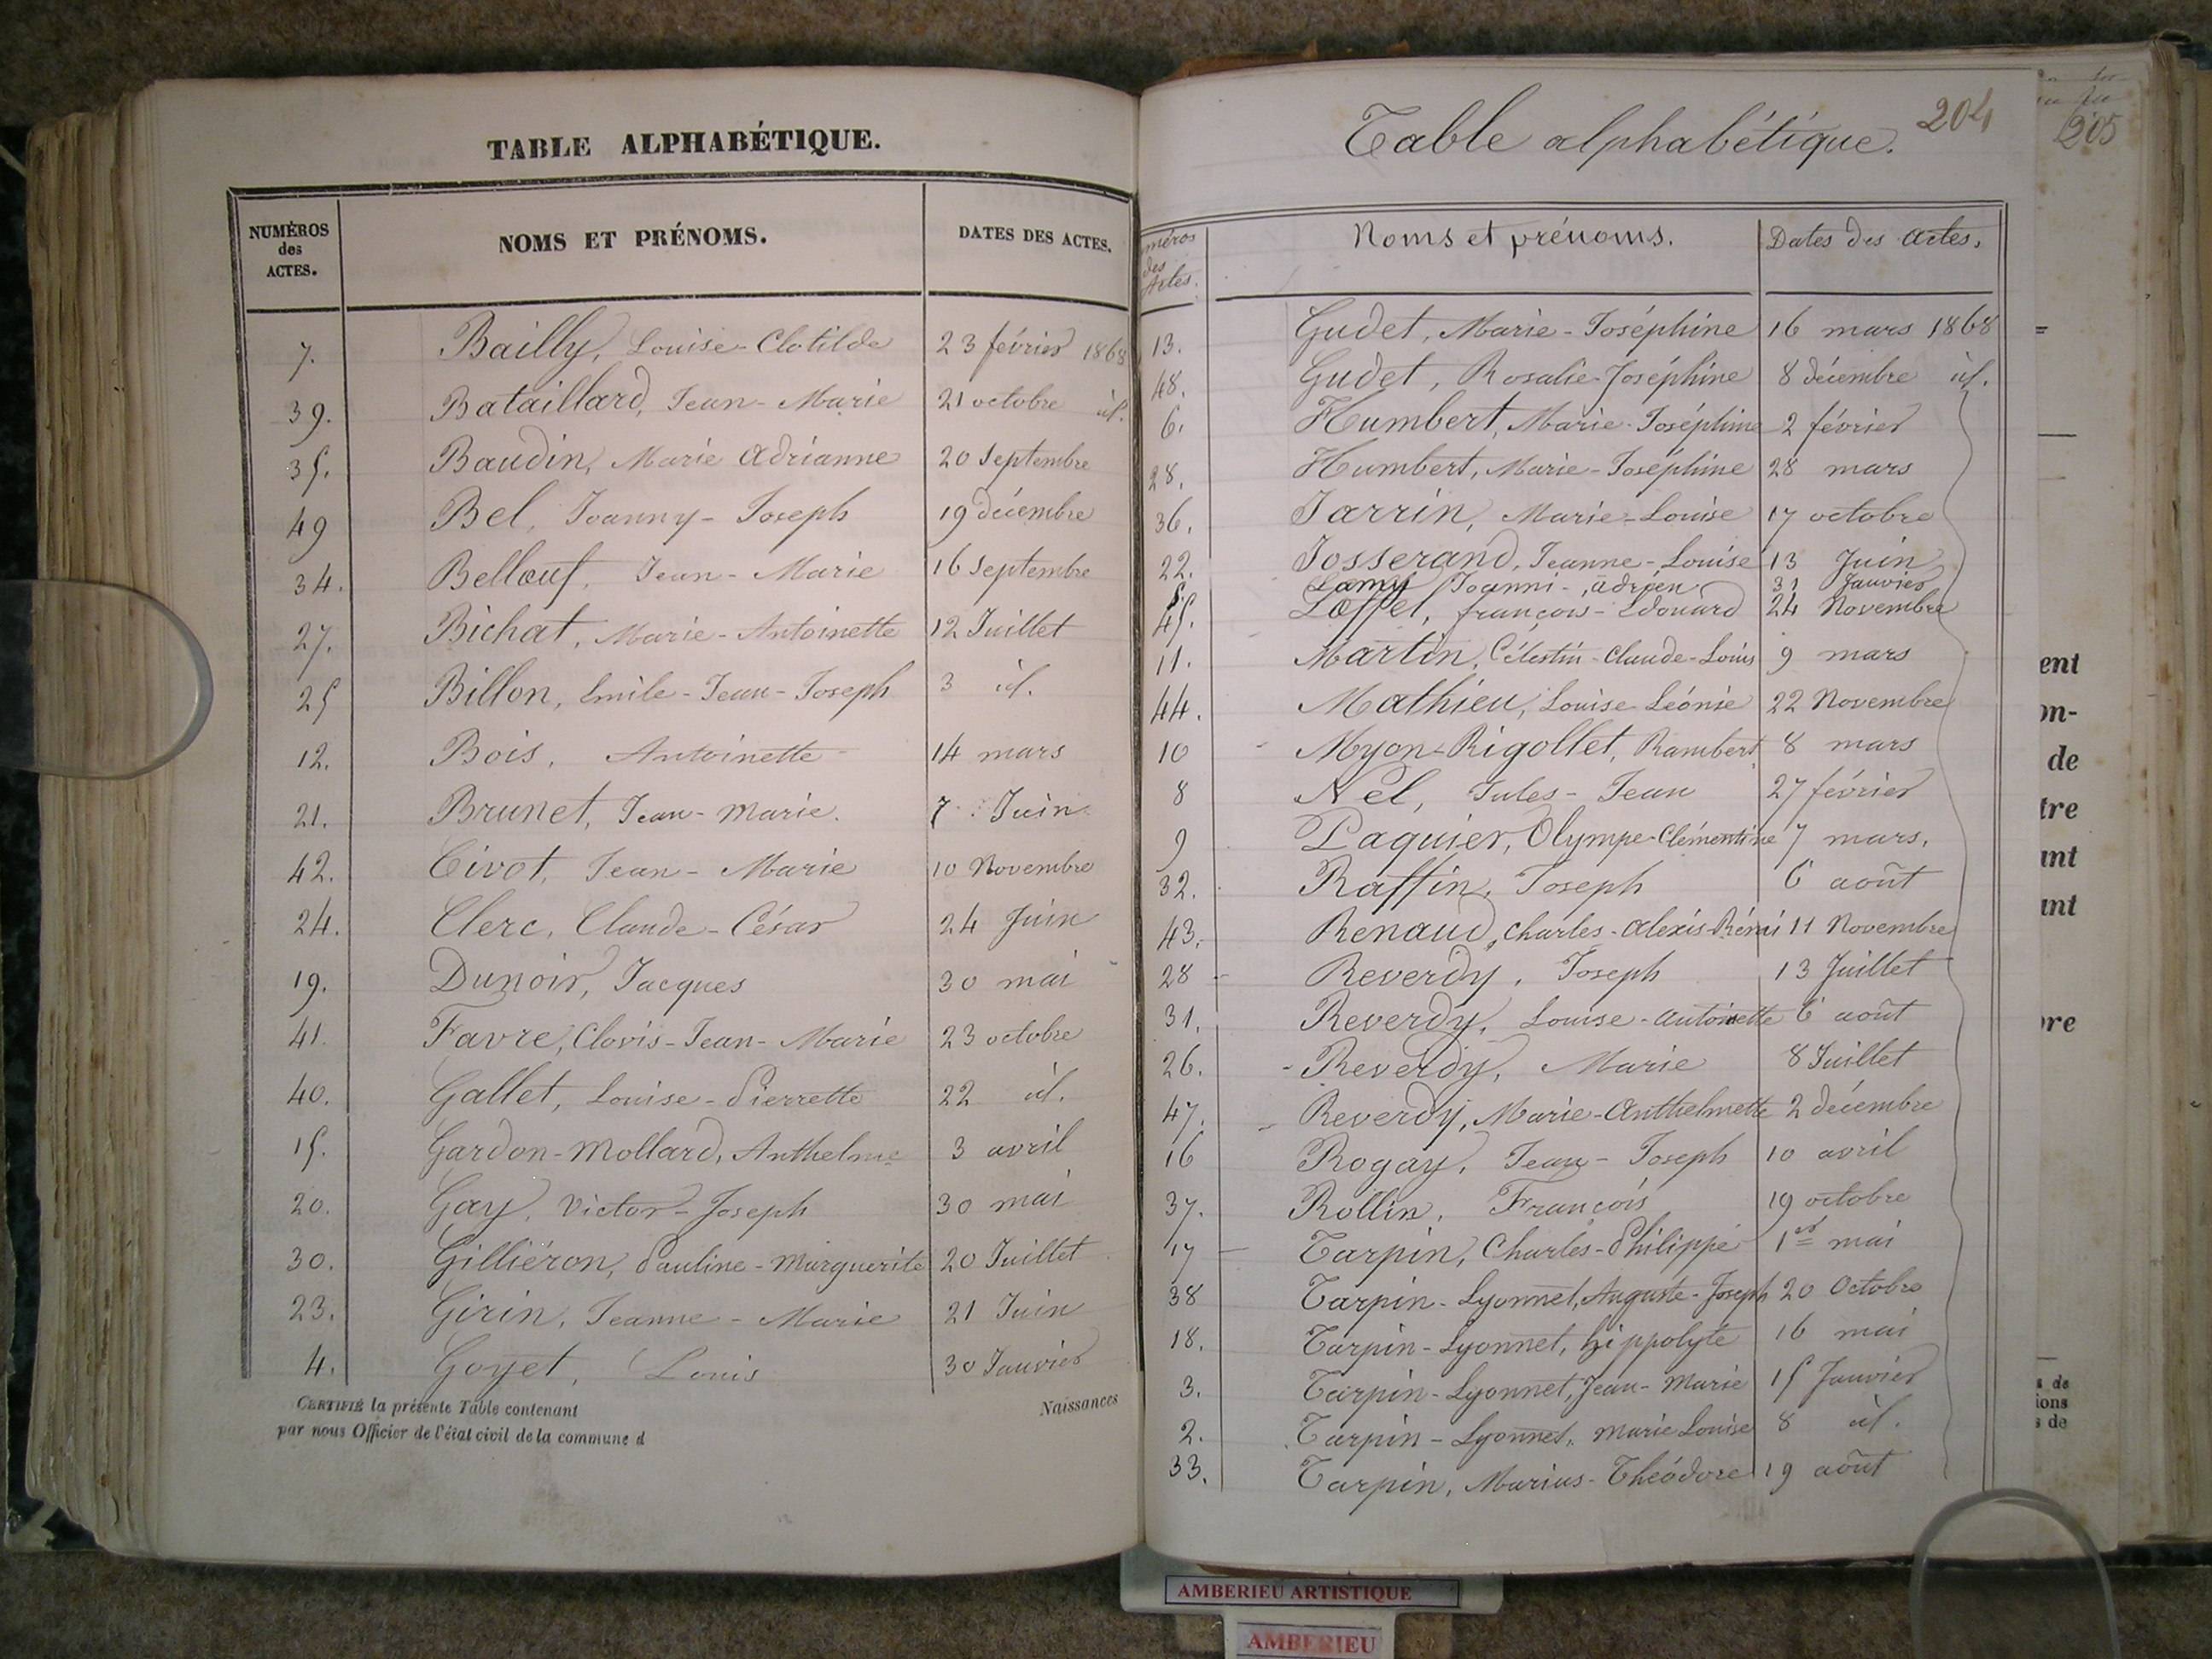 TABLE ALPHABÉTIQUE.
NUMÉROS des ACTES. NOMS ET PRÉNOMS. DATES DES ACTES.
7. Bailly, Louise-Clotilde 23 février 1868
39. Bataillard, Jean-Marie 21 octobre id.
35. Baudin, Marie Adrianne 20 Septembre
49 Bel, Joanny-Joseph 19 décembre
34. Bellouf, Jean-Marie 16 Septembre
27. Bichat, Marie-Antoinette 12 Juillet
25 Billon, Emile-Jean-Joseph 3 id.
12. Bois, Antoinette 14 mars
21. Brunet, Jean-Marie. 7 Juin
42. Civot, Jean-Marie 10 Novembre
24. Clerc, Claude-César 24 Juin
19. Dunoir, Jacques 30 mai
41. Favre, Clovis-Jean-Marie 23 octobre
40. Gallet, Louise-Pierrette 22 id.
15. Gardon-Mollard, Anthelme 3 avril
20. Gay, Victor-Joseph 30 mai
30. Gilliéron, Pauline-Marguerite 20 Juillet
23. Girin, Jeanne-Marie 21 Juin
4. Goyet, Louis 30 Janvier
CERTIFIÉ la présente Table contenant Naissances
par nous Officier de l'état civil de la commune d
Table alphabétique. 204
méros des Actes. Noms et prénoms. Dates des Actes.
13. Gudet, Marie-Joséphine 16 mars 1868
48. Gudet, Rosalie-Joséphine 8 décembre id.
6. Humbert, Marie-Joséphine 2 février
28. Humbert, Marie-Joséphine 28 mars
36. Jarrin, Marie-Louise 17 octobre
22. Josserand, Jeanne-Louise 13 Juin
5. Lamy Joanni-Adrien 31 Janvier
45. Loffel, françois-Edouard 24 Novembre
11. Martin, Célestin-Claude-Louis 9 mars
44. Mathieu, Louise Léonie 22 Novembre
10 Myon-Rigollet, Rambert 8 mars
8 Nel, Jules-Jean 27 février
9 Paquier, Olympe-Clémentine 7 mars.
32. Raffin, Joseph 6 août
43. Renaud, Charles-Alexis-Rémi 11 Novembre
28 Reverdy, Joseph 13 Juillet
31. Reverdy, Louise-Antoinette 6 août
26. Reverdy, Marie 8 Juillet
47. Reverdy, Marie-Anthelmette 2 décembre
16 Rogay, Jean-Joseph 10 avril
37. Rollin, François 19 octobre
17 Tarpin, Charles-Philippe 1er mai
38 Tarpin-Lyonnet, Auguste-Joseph 20 Octobre
18. Tarpin-Lyonnet, hippolyte 16 mai
3. Tarpin-Lyonnet, Jean-Marie 15 Janvier
2. Tarpin-Lyonnet, Marie Louise 8 id.
33. Tarpin, Marius-Théodore 19 août
205
ent
on-
de
tre
ant
ant
re
s de
ions
s de
AMBERIEU ARTISTIQUE
AMBERIEU